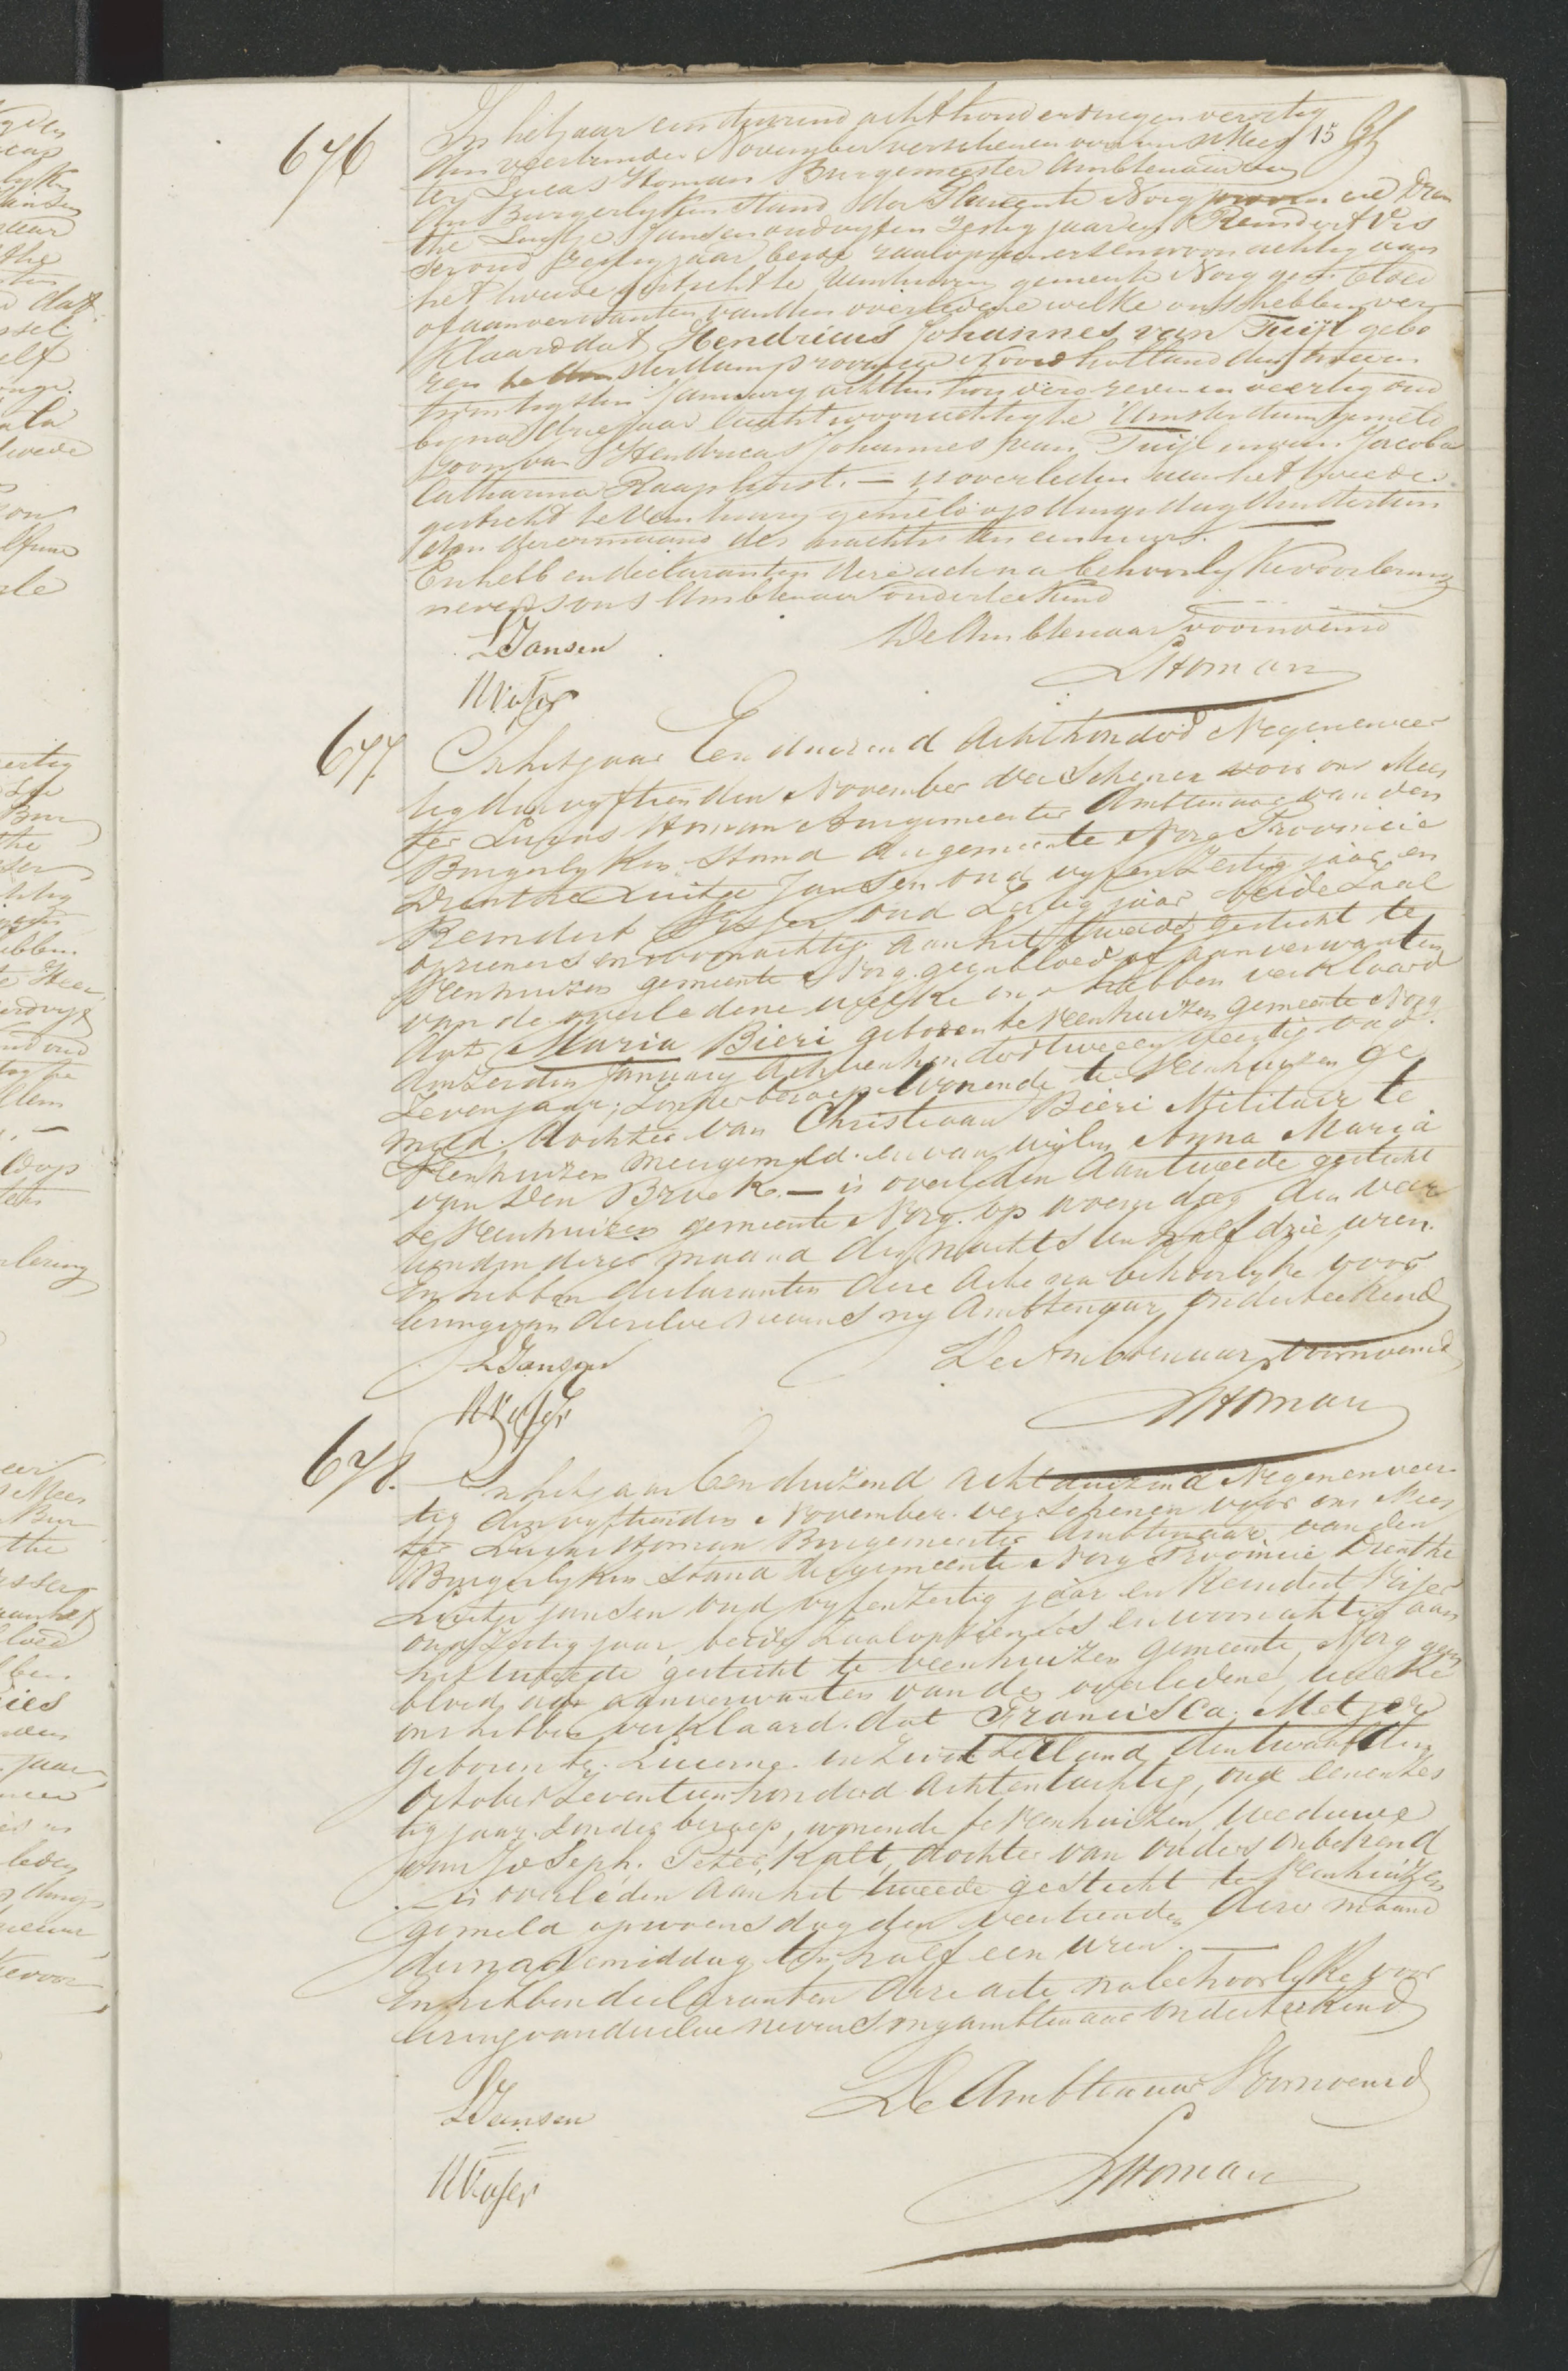 15
676
In het jaar een duizend acht honderd negen veertig
den veertienden November verschenen voor ons Mees
ter Lucas Homan Burgemeester Ambtenaar van
den Burgerlyken Stand der Gemeente Norg provincie Dren
the Luitje Jansen oud vyf en Zestig jaar en Reindert Vis
ser oud zestig jaar beide zaalopzieners en woonachtig aan
het tweede gesticht te Veenhuizen gemeente Norg geen bloed
of aanverwanten van den overledene welke ons hebben ver
klaard dat Hendricus Johannes van Tuijl gebo
ren te Amsterdam provincie Noord holland den
twintigsten January achttien honderd zeven en veertig oud
byna drie jaar laatst woonachtig te Amsterdam gemeld
zoon van Hendricus Johannes van Tuijl en van Jacoba
Catharina Raaphorst. — is overleden aan het tweede
gesticht te Veenhuizen gemeld op dingsdag den dertien
den dezer maand des nachts ten een uur. —
En hebben declaranten deze acte na behoorlyke voorlezing
nevens ons Ambtenaar onderteekend
De Ambtenaar voornoemd
LJansen
LHoman
RVisser
677.
In het jaar Een duizend Achthonderd Negenenveer
tig den vyftienden November verschenen voor ons Mees
ter Lucas Homan Burgemeester Ambtenaar van den
Burgerlyken Stand der gemeente Norg Provincie
Drenthe Luitje Jansen oud vyf en Zestig jaar en
Reindert Visser oud Zestig jaar beide Zaal
opzieners en woonachtig aan het tweede gesticht te
Veenhuizen gemeente Norg. geen bloed of aanverwanten
van de overledene welke ons hebben verklaard
dat Maria Bieri geboren te Veenhuizen gemeente Norg
den January Achttienhonderd twee en veertig oud
Zeven jaar, Zonder beroep wonende te Veenhuizen ge
meld. dochter van Christiaan Bieri Militair te
Veenhuizen meergemeld. en van wijlen Anna Maria
van den Broek. — is overleden aan tweede gesticht
te Veenhuizen gemeente Norg. op woensdag den veer
tienden dezer maand des nachts ten half drie uren.
En hebben declaranten deze Acte na behoorlyke voor
lezing van dezelve nevens my Ambtenaar onderteekend
De Ambtenaar voornoemd
LJansen
LHoman
RVisser
678.
In het jaar Een duizend acht duizend Negenenveer
tig den vyftienden November. verschenen voor ons Mees
ter Lucas Homan Burgemeester Ambtenaar van den
Burgerlyken Stand der gemeente Norg Provincie Drenthe
Luitje Jansen oud vyf en Zestig jaar en Reindert Visser
oud Zestig jaar, beide Zaalopzieners en woonachtig aan
het tweede gesticht te Veenhuizen gemeente Norg geen
bloed of aanverwanten van de overledene, welke
ons hebben verklaard. dat Francisca Metzer
geboren te Lucerne in Zwitzerland den twaalfden
October Zeventienhonderd Achtentachtig, oud eenenzes
tig jaar. Zonder beroep, wonende te Veenhuizen, weduwe
van Joseph. Peter. Kalt, dochter van Ouders onbekend
is overleden aan het tweede gesticht te Veenhuizen
gemeld op woensdag den veertienden dezer maand
des nademiddag ten half een uren. —
En hebben declaranten deze acte na behoorlyke voor
lezing van dezelve nevens my ambtenaar onderteekend
De Ambtenaar Voornoemd
LJansen
LHoman
RVisser